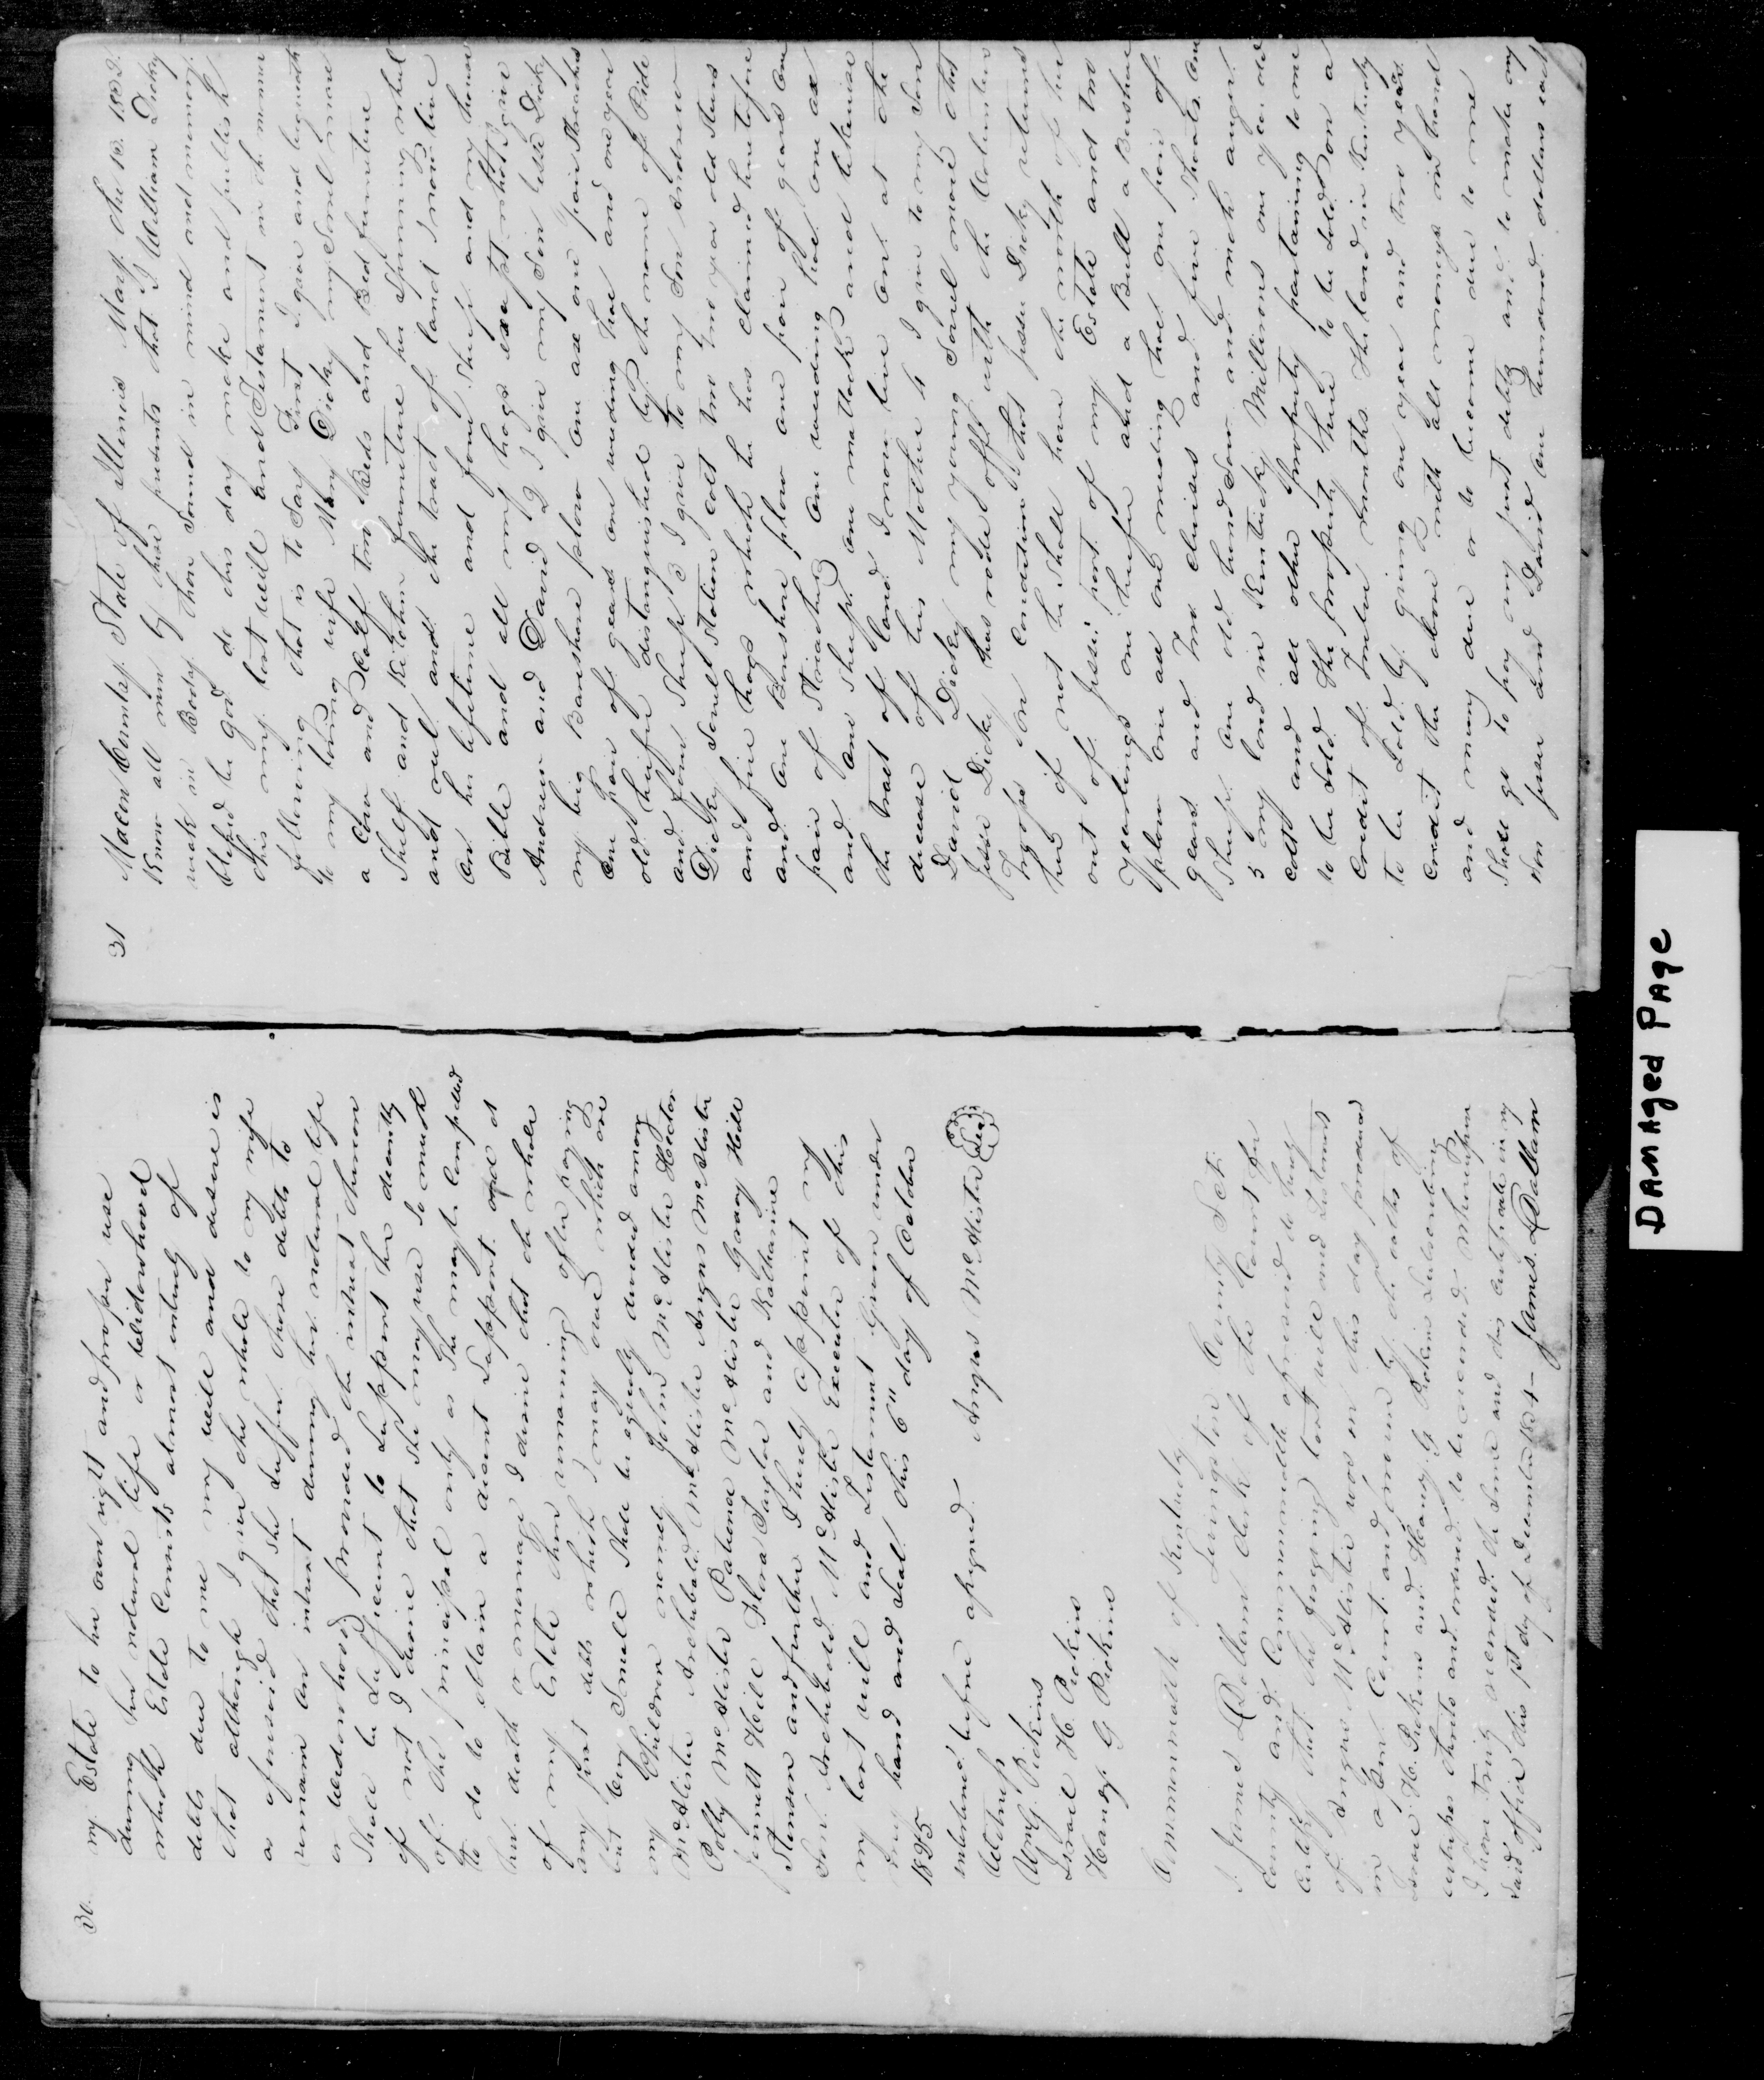 30.
my Estate to her own right and proper use
during her natural life or widdowshood
which Estate Consists almost entirely of
debts due to me my will and desire is
that although I give the whole to my wife
as aforesaid that She Suffer those debts to
remain on intrust during her natural life
or widowhood provided the intrust thereon
Shall be Sufficient to Support her decently
if not I desire that She may use So much
of the principal only as She may be Compelled
to do to obtain a decent Support and at
her death or marriage I desire that the whole
of my Estate then remaining after paying
any just debts which I may owe which are
but very Small Shall be equally divided among
my Children namely John McAlister Hector
McAlister Archabald McAlister Angus McAlister
Polly McAlister Patience McAlister Gracey Hill
Jennett Hill Flora Taylor and Katharine
Stenson and further I hereby appoint my
Son Archabald McAlister Executor of this
my last will and Testament Given under
my hand and Seal this 6th day of October
1825
interlined before assigned Angus McAlister Seal
Witness
Wm G. Pickins
Israel H. Pickins
Haney G Pickins
Commonwealth of Kentucky
Livingston County Sct.
I James L Dallam Clerk of the Court for
County and Commonwealth aforesaid do hereby
Certify that the forgoing last will and Testament
of Angus McAlister was on this day produced
in open Court and proven by the oaths of
Israel H. Pickens and Haney G Pickins Subscribing
witnesses thereto and ordered to be recorded whereupon
I have truly recorded the Same and this certificate in my
Said office this 1st day of December 1834
James L Dallam
31
Macon County State of Illinois May the 10. 1832.
Know all men by these presents that I William Dicky
weak in Body thou Sound in mind and memory
blessed be god do this day make and publish
this my last will and Testament in the manner
following that is to Say First I give and bequeath
to my loving wife Mary Dicky my Sorrel mare
a Cow and Calf two Beds and Bed furniture
Shelf and Kitchen furniture her Spinning wheel
and reel and the tract of land I now live
on her lifetime and four Sheep and my house
Bible and all my hogs except what I give
Andrew and David 2 I give my Son Jesse Dicky
my big Barshare plow one axe one pair Streachers
one pair of gears one weeding hoe and one year
old heifer distinguished by the name of Pide
and four Sheep 3 I give to my Son Andrew
Dicky Sorrel Stalion Colt two two year old Steers
and five hogs which he has claimed heretofore
and one Barshare plow one pair of gears one
pair of Streachers one weeding hoe one axe
and one Sheep one mattock and likewise
the tract of land I now live on at the
decease of his Mother 4 I give to my Son
David Dicky my young Sorrel mare that
Jesse Dicky has rode off with the Volunteers
Troops on Condition that Jesse Dicky returns
her if not he Shall have the worth of her
out of Jesses part of my Estate and two
Yearlings one heifer and a Bull a Barshare
plow one axe one weeding hoe one pair of
gears and two clevises and five Shoats one
Sheep one old hand Saw and inch auger
5 my land in Kentucky Millirons one year old
Colt and all other property pertaining to me
to be Sold the property here to be Sold on a
Credit of Twelve months the land in Kentucky
to be Sold by giving one year and two years
Credit the above with all moneys in hand
and money due or to become due to me
Shall go to pay my just debts and to make my
Son Jesse and David one hundred dollars each
DAMAged PAge